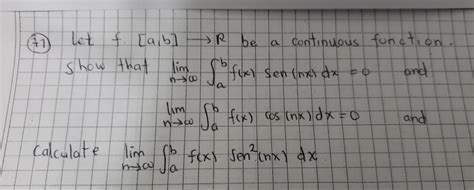 71 Let f: [a,b] → R be a continuous function.
Show that lim n→∞ ∫_a^b f(x) sen(nx) dx = 0 and
lim n→∞ ∫_a^b f(x) cos(nx) dx = 0 and
Calculate lim n→∞ ∫_a^b f(x) sen²(nx) dx